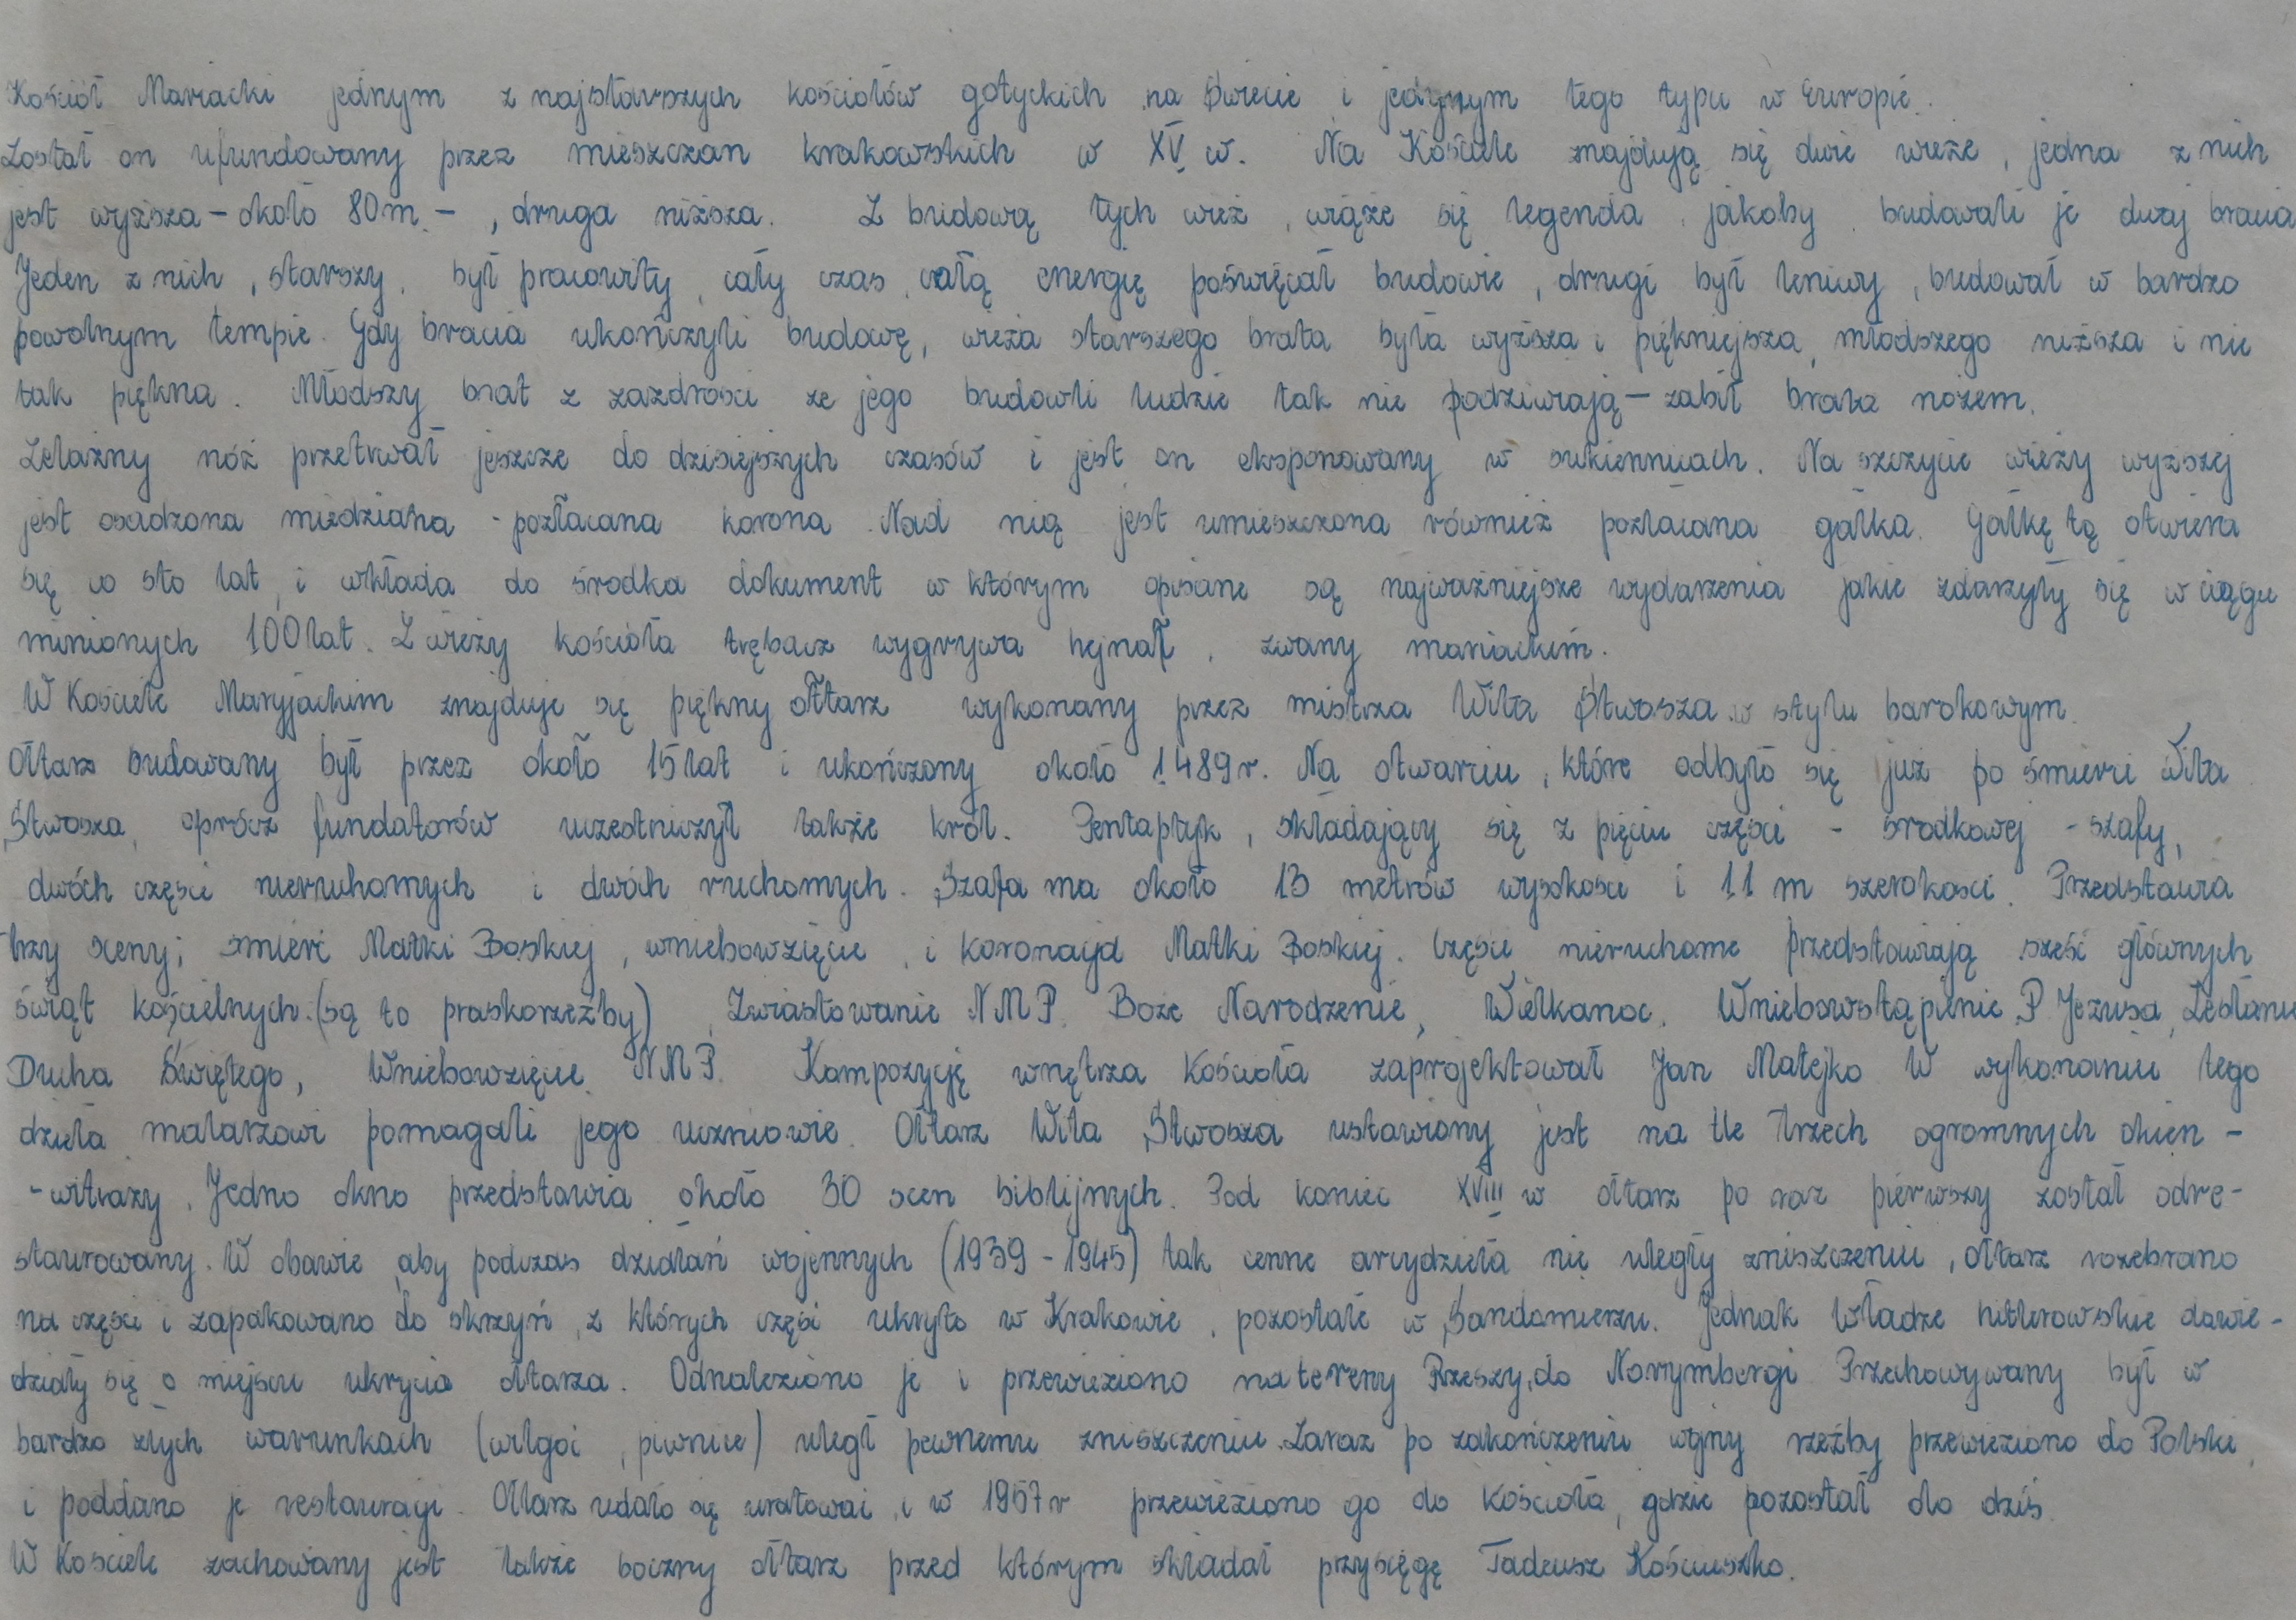 Kościół Mariacki jednym z najstarszych kościołów gotyckich na świecie i jedynym tego typu w Europie.
Został on ufundowany przez mieszczan krakowskich w XV w. Na Kościele znajdują się dwie wieże, jedna z nich
jest wyższa - około 80 m. - , druga niższa. Z budową tych wież, wiąże się legenda, jakoby budowali je dwaj bracia
Jeden z nich, starszy, był pracowity, cały czas, całą energię poświęcał budowie, drugi był leniwy, budował w bardzo
powolnym tempie. Gdy bracia ukończyli budowę, wieża starszego brata była wyższa i piękniejsza, młodszego niższa i nie
tak piękna. Młodszy brat z zazdrości że jego budowli ludzie tak nie podziwiają - zabił brata nożem.
Żelazny nóż przetrwał jeszcze do dzisiejszych czasów i jest on eksponowany w sukiennicach. Na szczycie wieży wyższej
jest osadzona miedziana - pozłacana korona. Nad nią jest umieszczona również pozłacana gałka. Gałkę tą otwiera
się co sto lat, i wkłada do środka dokument w którym opisane są najważniejsze wydarzenia jakie zdarzyły się w ciągu
minionych 100 lat. Z wieży kościoła trębacz wygrywa hejnał, zwany mariackim.
W Kościele Maryjackim znajduje się piękny ołtarz wykonany przez mistrza Wita Stwosza w stylu barokowym.
Ołtarz budowany był przez około 15 lat i ukończony około 1489 r. Na otwarciu, które odbyło się już po śmierci Wita
Stwosza, oprócz fundatorów uczestniczył także król. Pentaptyk, składający się z pięciu części - środkowej - szafy,
dwóch części nieruchomych i dwóch ruchomych. Szafa ma około 13 metrów wysokości i 11 m szerokości. Przedstawia
trzy sceny; śmierć Matki Boskiej, wniebowzięcie, i koronacja Matki Boskiej. Części nieruchome przedstawiają sześć głównych
świąt kościelnych. (są to płaskorzeźby), Zwiastowanie NMP. Boże Narodzenie, Wielkanoc. Wniebowstąpienie P. Jezusa, Zesłanie
Ducha Świętego, Wniebowzięcie NMP. Kompozycję wnętrza Kościoła zaprojektował Jan Matejko W wykonaniu tego
dzieła malarzowi pomagali jego uczniowie. Ołtarz Wita Stwosza ustawiony jest na tle trzech ogromnych okien -
- witraży. Jedno okno przedstawia około 30 scen biblijnych. Pod koniec XVIII w ołtarz po raz pierwszy został odre-
staurowany. W obawie aby podczas działań wojennych (1939 - 1945) tak cenne arcydzieła nie uległy zniszczeniu, ołtarz rozebrano
na części i zapakowano do skrzyń, z których część ukryto w Krakowie, pozostałe w Sandomierzu. Jednak władze hitlerowskie dowie-
działy się o miejscu ukrycia ołtarza. Odnaleziono je i przewieziono na tereny Rzeszy, do Norymbergi Przechowywany był w
bardzo złych warunkach (wilgoć, piwnice) uległ pewnemu zniszczeniu. Zaraz po zakończeniu wojny rzeźby przewieziono do Polski,
i poddano je restauracji. Ołtarz udało się uratować, i w 1957 r przewieziono go do Kościoła, gdzie pozostał do dziś.
W Kościele zachowany jest także boczny ołtarz przed którym składał przysięgę Tadeusz Kościuszko.